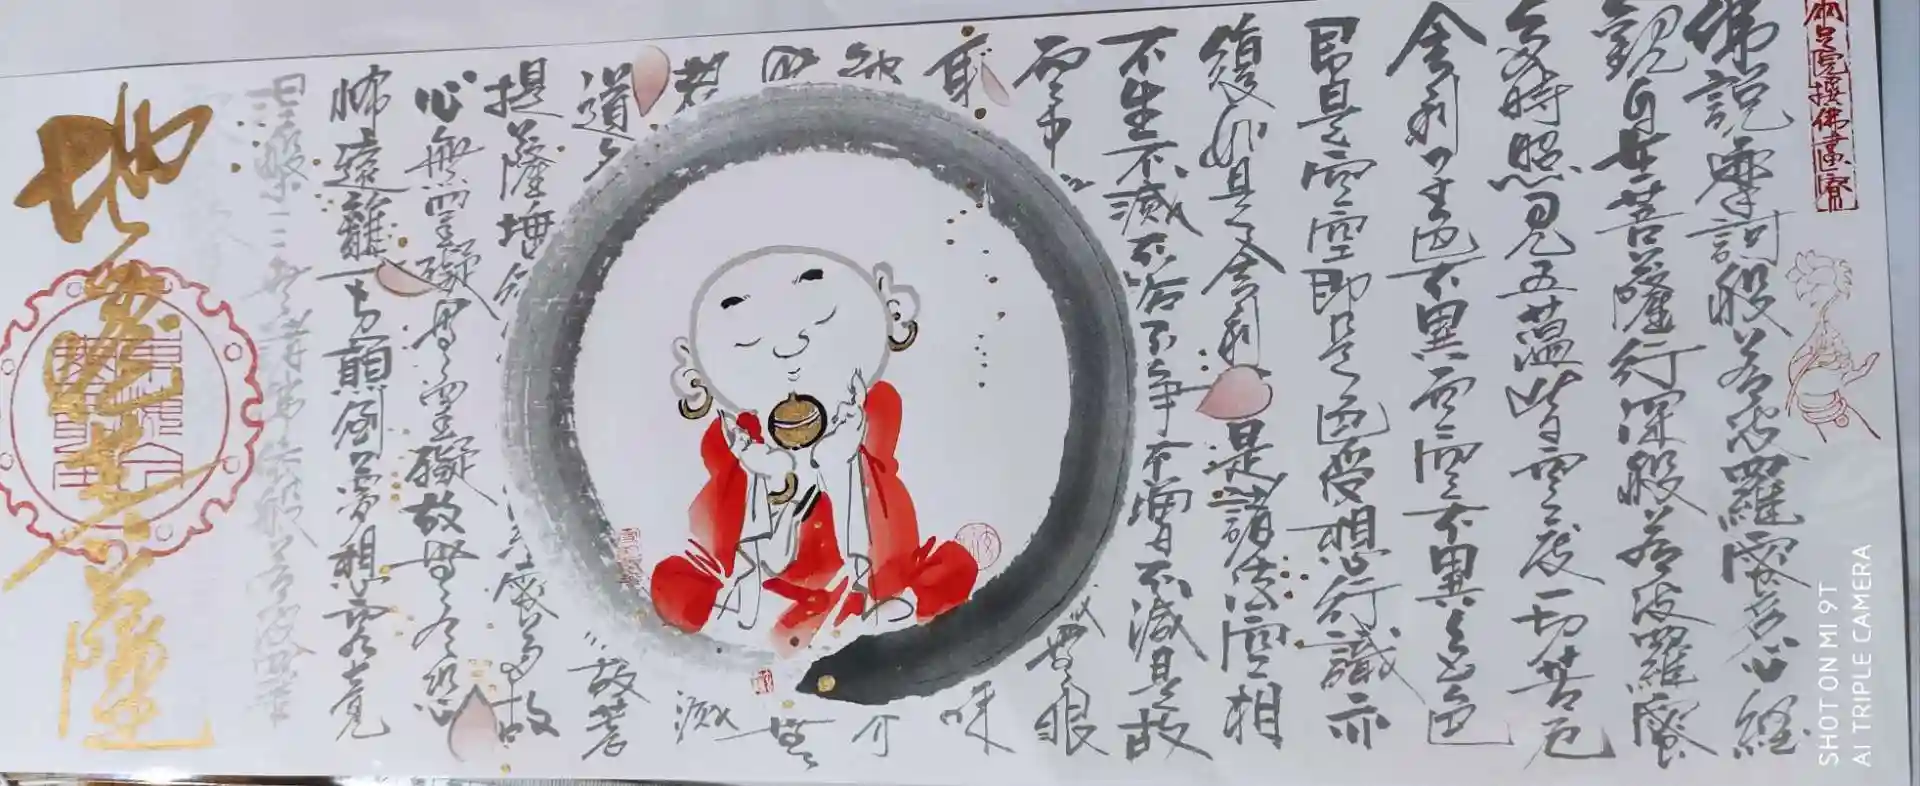 佛説摩訶般若波羅蜜多心経
觀自在菩薩行深般若波羅蜜
多時照見五蘊皆空度一切苦厄
舎利子色不異空空不異色色
即是空空即是色受想行識亦
復如是舎利是諸法空相
不生不滅不垢不浄不増不減是故
空中 無眼
耳 味
滅
道 故菩
提薩埵 蜜多故
心無罣礙無罣礙故無有恐
怖遠離一切顛倒夢想究竟
涅槃三世諸佛依般若波羅蜜
地蔵菩薩
SHOT ON MI 9T
AI TRIPLE CAMERA